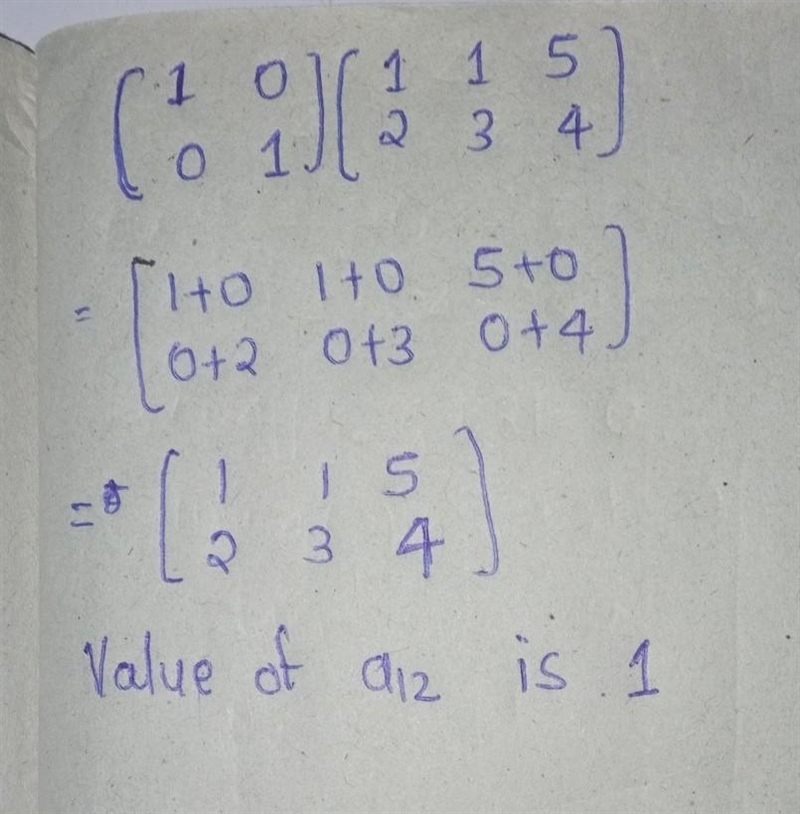 [1 0] [1 1 5]
[0 1] [2 3 4]
= [1+0 1+0 5+0]
[0+2 0+3 0+4]
= [1 1 5]
[2 3 4]
Value of a12 is 1